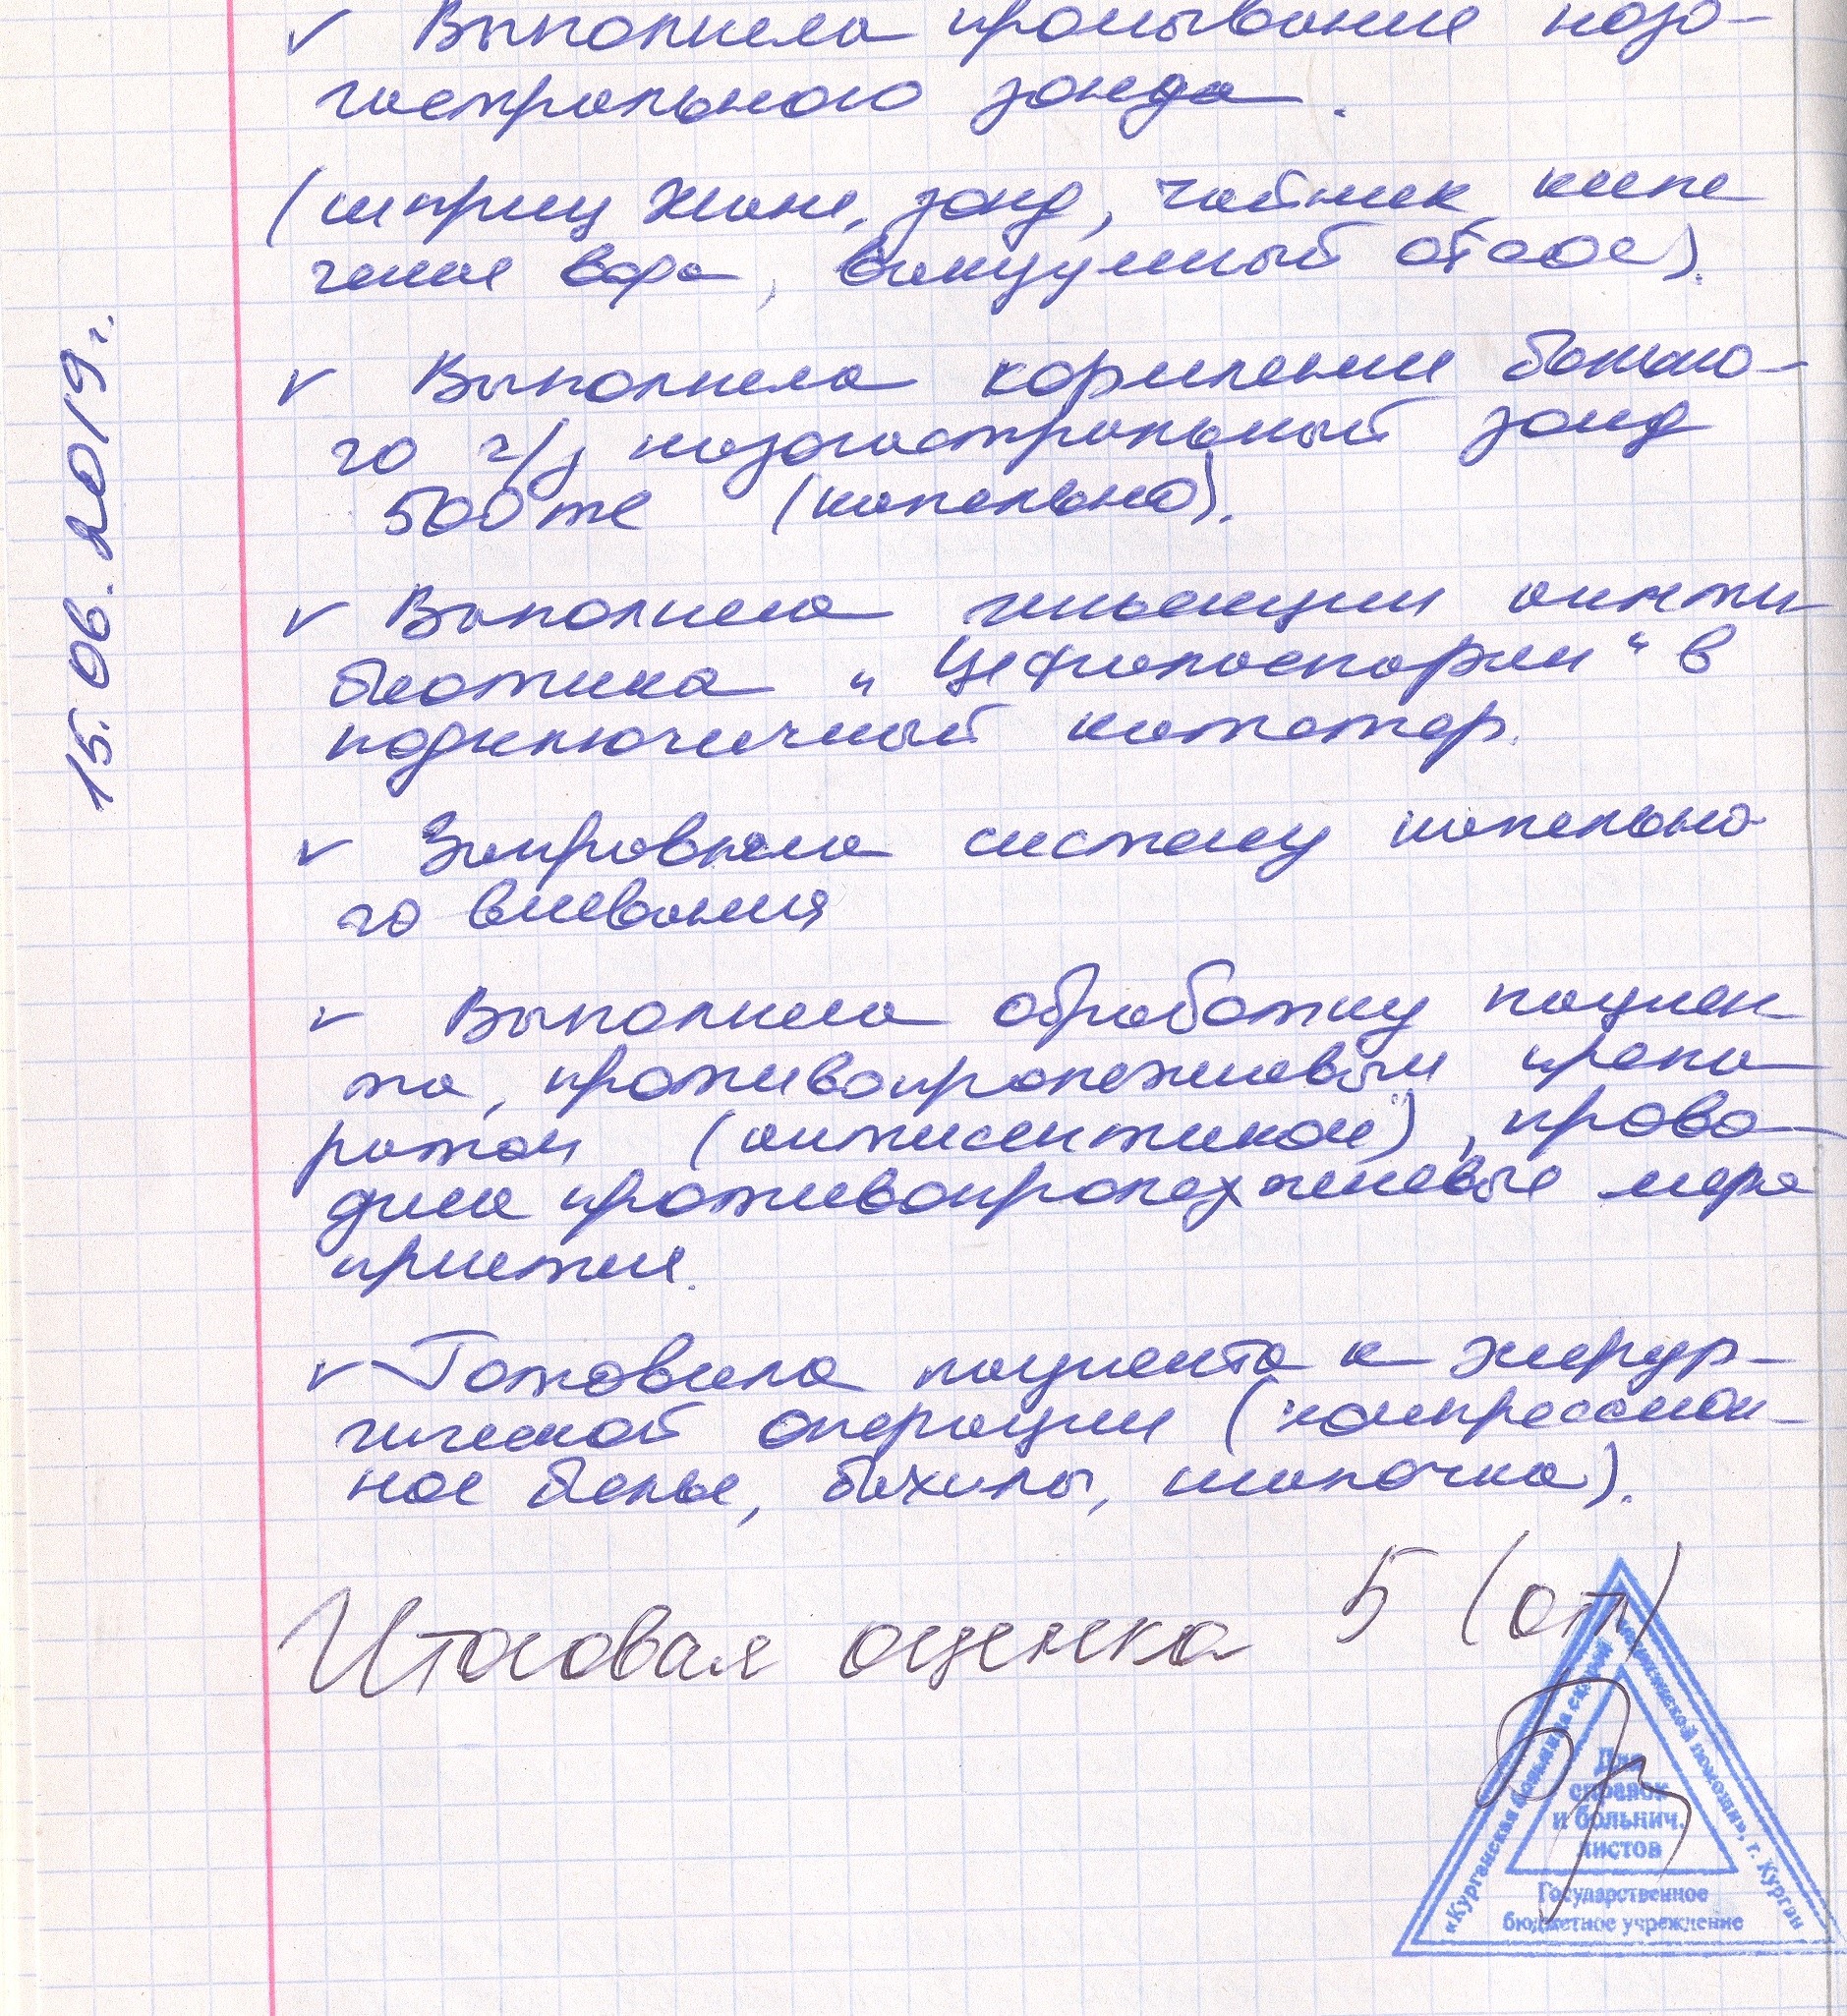 ✓ Выполнила промывание назо-
гастрального зонда.
(шприц Жане, зонд, чайник, кипе
ченая вода, вакуумный отсос).
✓ Выполнила кормлении больно-
го ч/з назогастральный зонд
500 мл (капельно).
✓ Выполнила иньекции анти
биотика „Цефалоспорин“ в
подключичный катетер.
15.06.2019 г.
✓ Заправляла систему капельно
го вливания
✓ Выполнила обработку пациен-
та, противопролежневым препа
ратом (антисептиком), прово-
дила противопролежневые меро
приятия.
✓ Готовила пациента к хирур-
гической операции (компрессион-
ное белье, бахилы, шапочка).
Итоговая оценка 5 (отл)
«Курганская больница скорой медицинской помощи», г. Курган
Для
справок
и больнич.
листов
Государственное
бюджетное учреждение